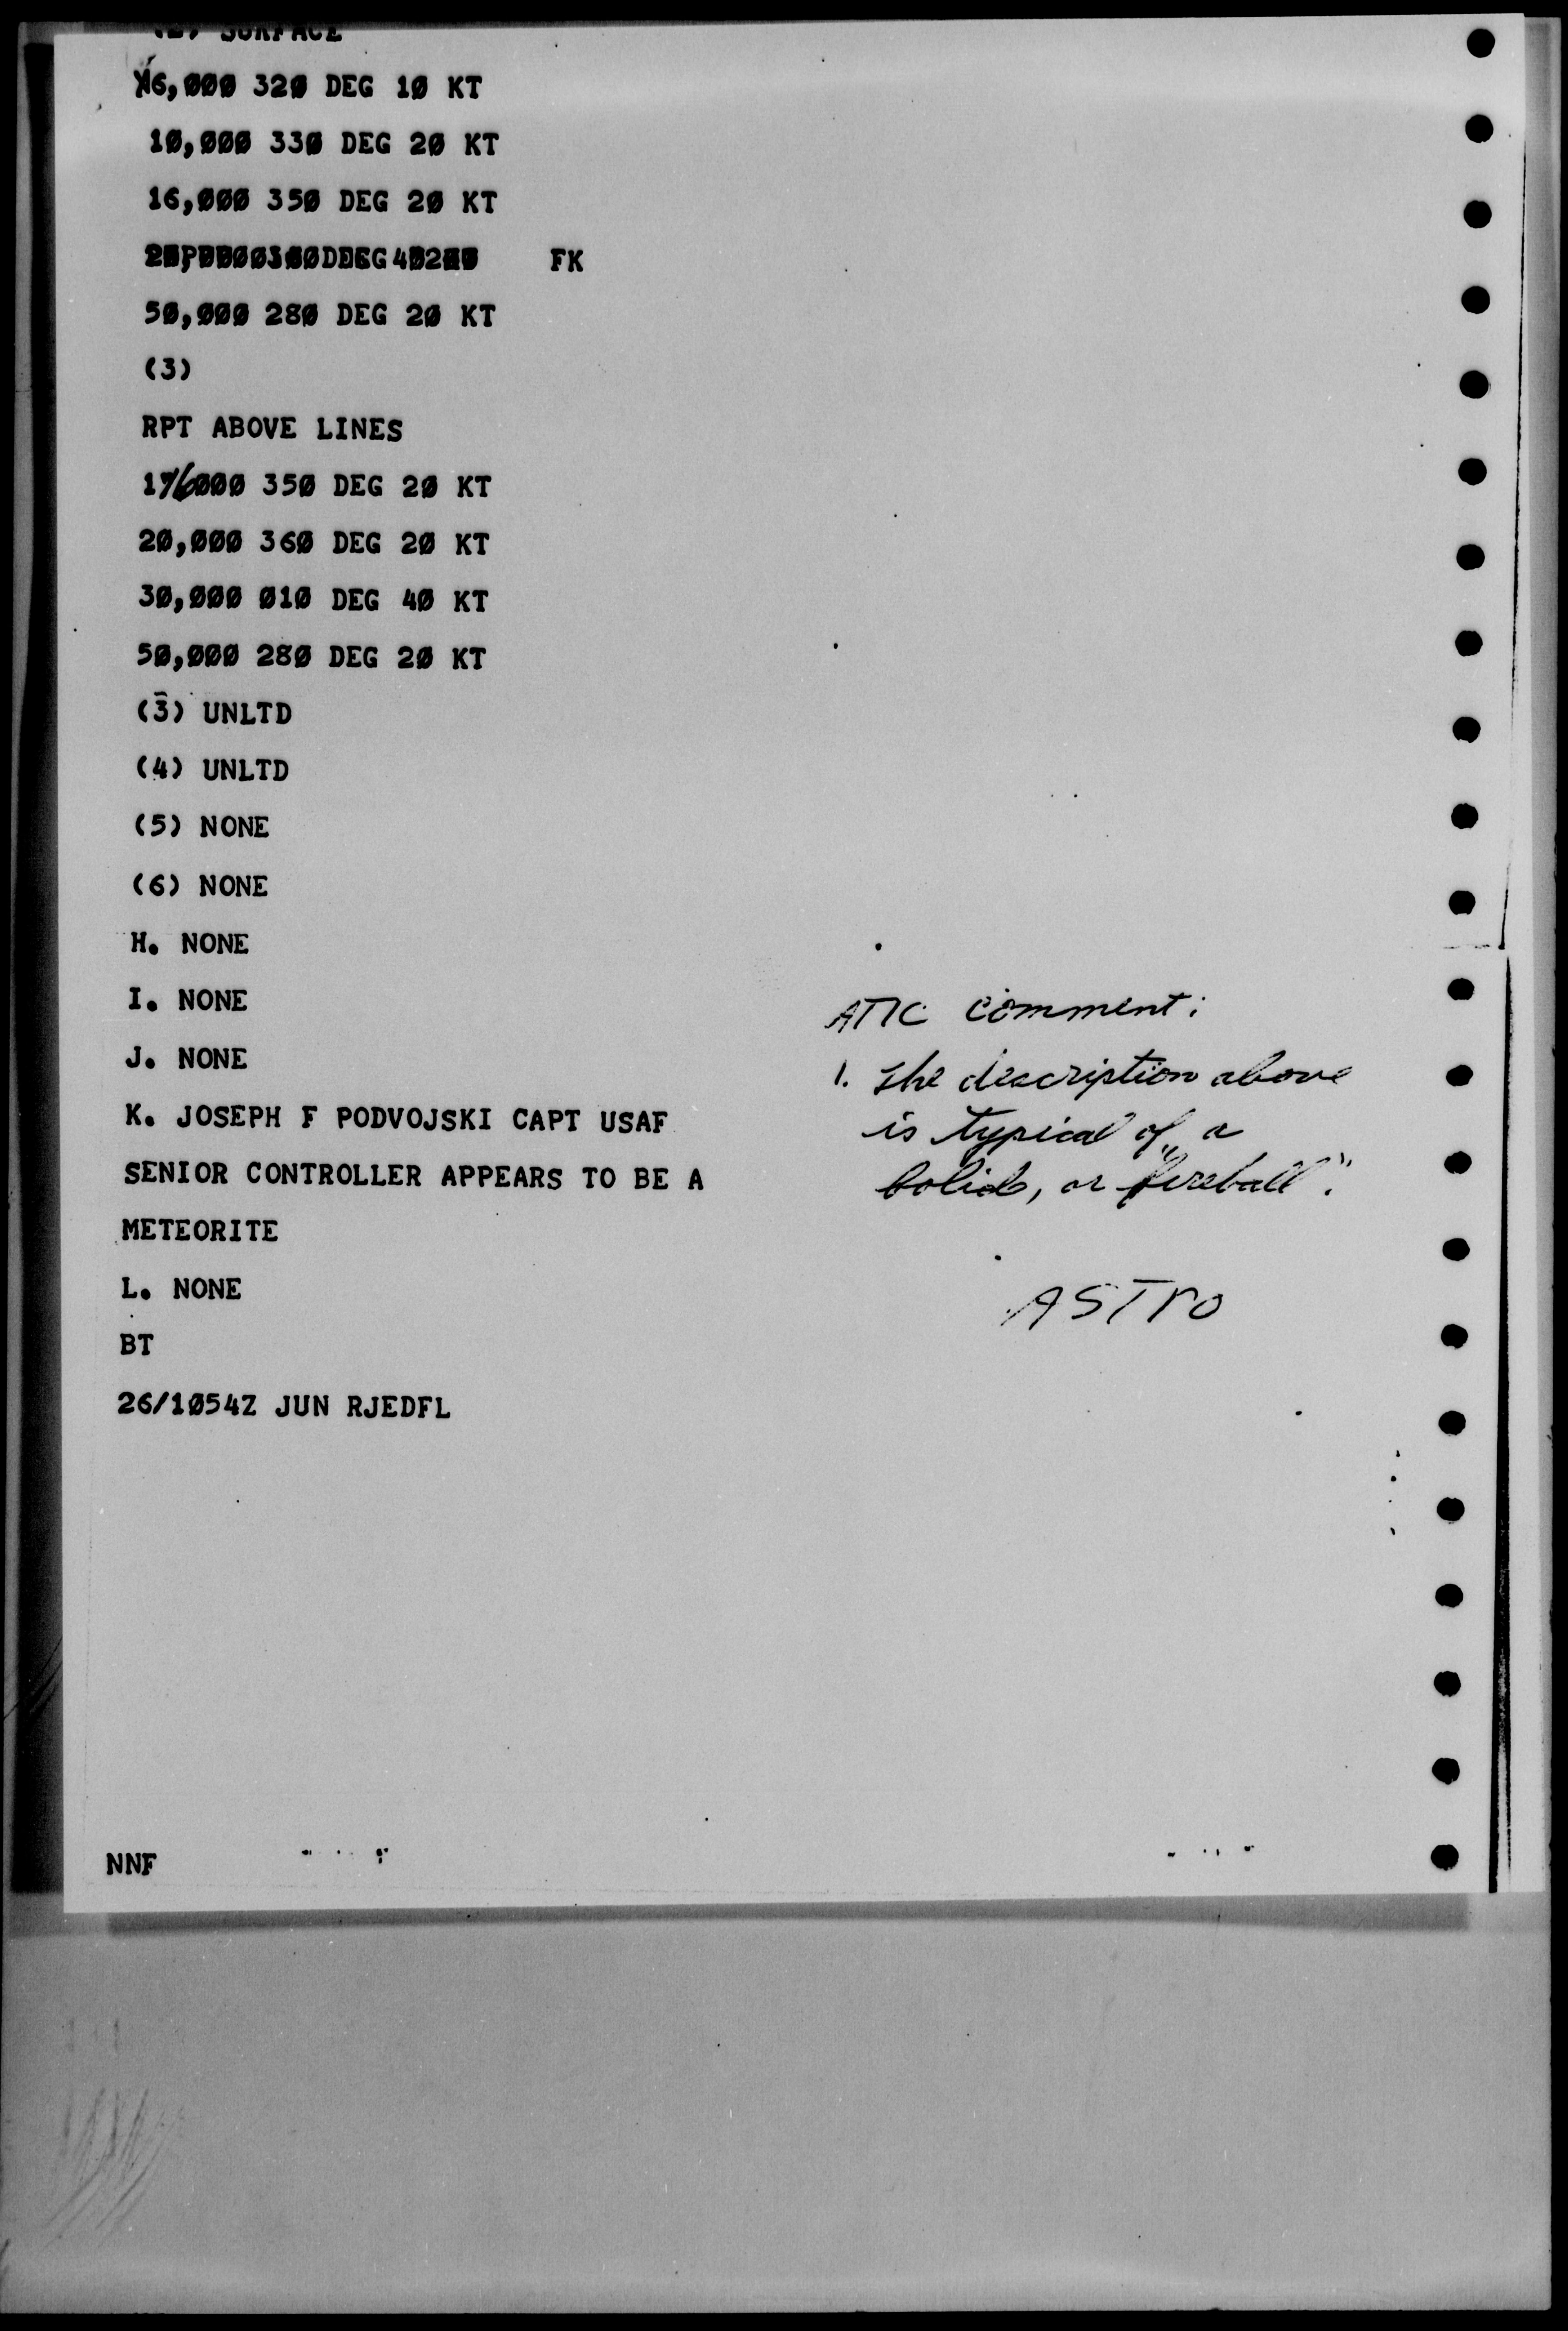 (2) SURFACE
6,000 320 DEG 10 KT
10,000 330 DEG 20 KT
16,000 350 DEG 20 KT
FK
50,000 280 DEG 20 KT
(3)
RPT ABOVE LINES
16000 350 DEG 20 KT
20,000 360 DEG 20 KT
30,000 010 DEG 40 KT
50,000 280 DEG 20 KT
(3) UNLTD
(4) UNLTD
(5) NONE
(6) NONE
H. NONE
I. NONE
J. NONE
K. JOSEPH F PODVOJSKI CAPT USAF
SENIOR CONTROLLER APPEARS TO BE A
METEORITE
L. NONE
BT
26/1054Z JUN RJEDFL
ATIC comment:
1. The description above
is typical of a
bolide, or "fireball".
ASTRO
NNF